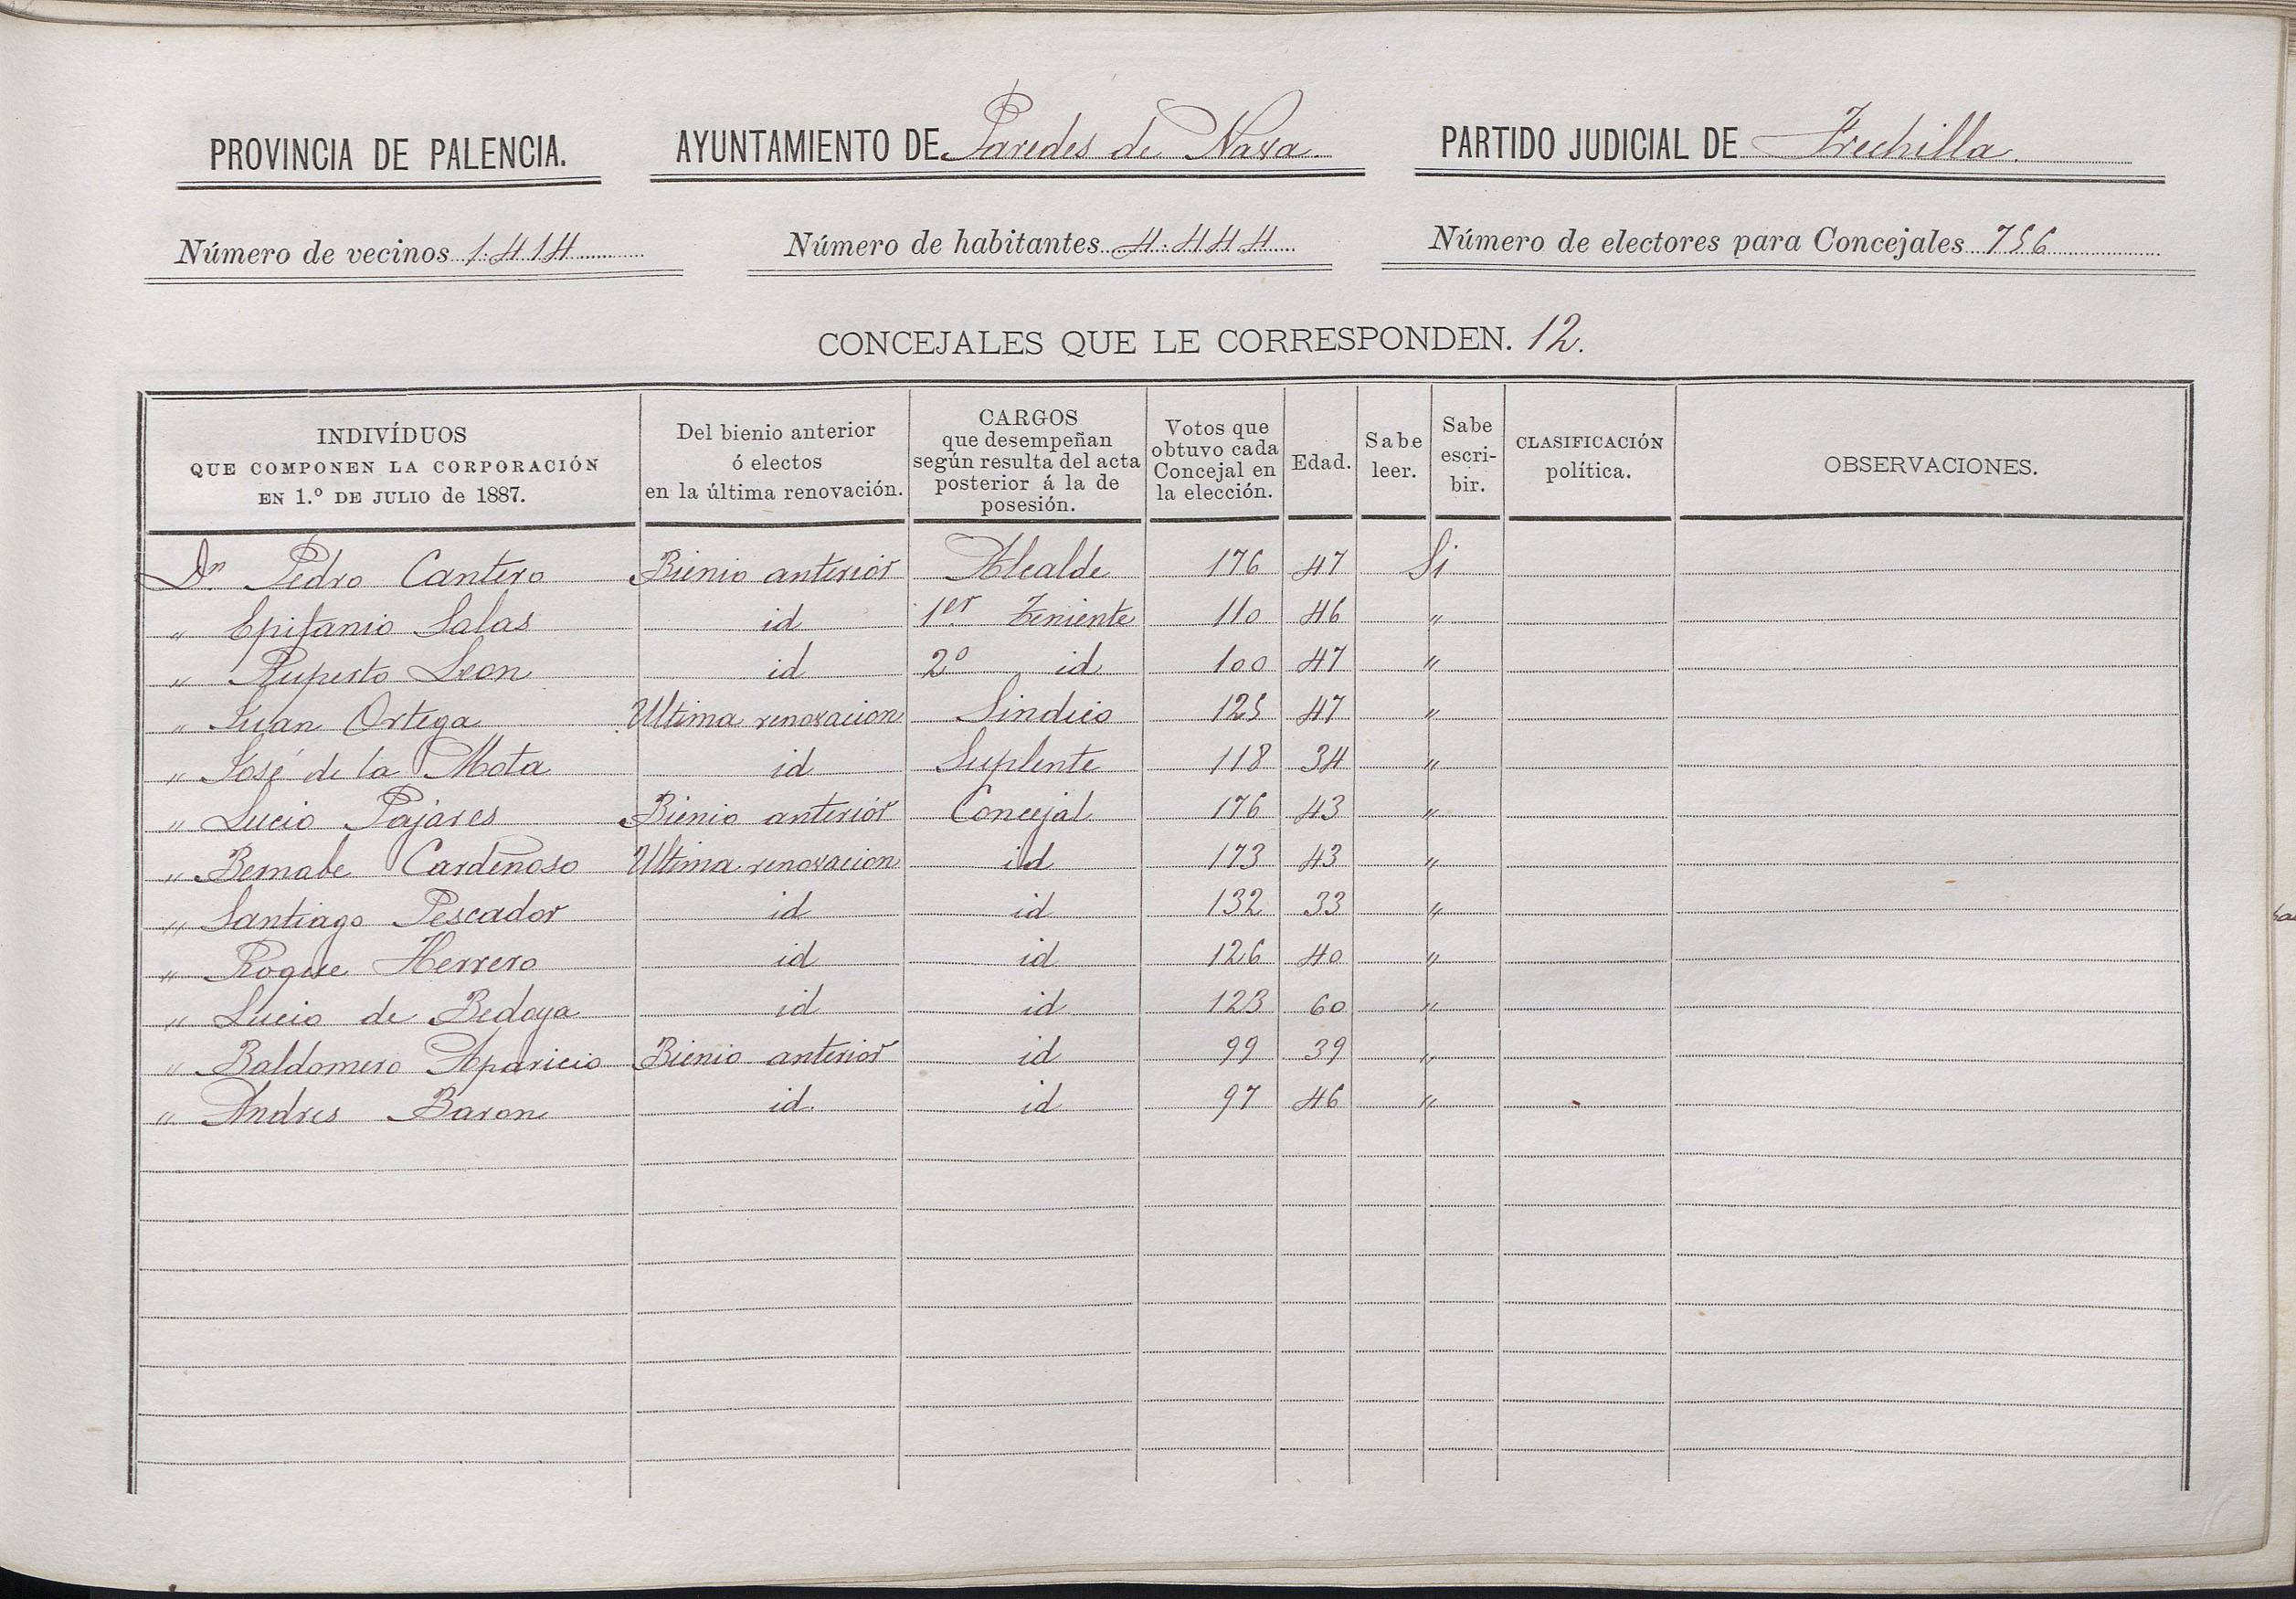 PROVINCIA DE PALENCIA. AYUNTAMIENTO DE Paredes de Nava PARTIDO JUDICIAL DE Frechilla.
Número de vecinos 1.414 Número de habitantes 4.444 Número de electores para Concejales 756
CONCEJALES QUE LE CORRESPONDEN. 12.
INDIVÍDUOS QUE COMPONEN LA CORPORACIÓN EN 1.º DE JULIO de 1887. Del bienio anterior ó electos en la última renovación. CARGOS que desempeñan según resulta del acta posterior á la de posesión. Votos que obtuvo cada Concejal en la elección. Edad. Sabe leer. Sabe escribir. CLASIFICACIÓN política. OBSERVACIONES.
Dn. Pedro Cantero Bienio anterior Alcalde 176 47 Si
" Epifanio Salas id 1er Teniente 110 46 "
" Ruperto Leon id 2º id 100 47 "
" Juan Ortega Ultima renovacion Sindico 125 47 "
" José de la Mota id Suplente 118 34 "
" Lucio Pajares Bienio anterior Concejal 176 43 "
" Bernabe Cardeñoso Ultima renovacion id 173 43 "
" Santiago Pescador id id 132 33 "
" Roque Herrero id id 126 40 "
" Lucio de Bedoya id id 123 60 "
" Baldomero Aparicio Bienio anterior id 99 39 "
" Andres Baron id. id 97 46 "